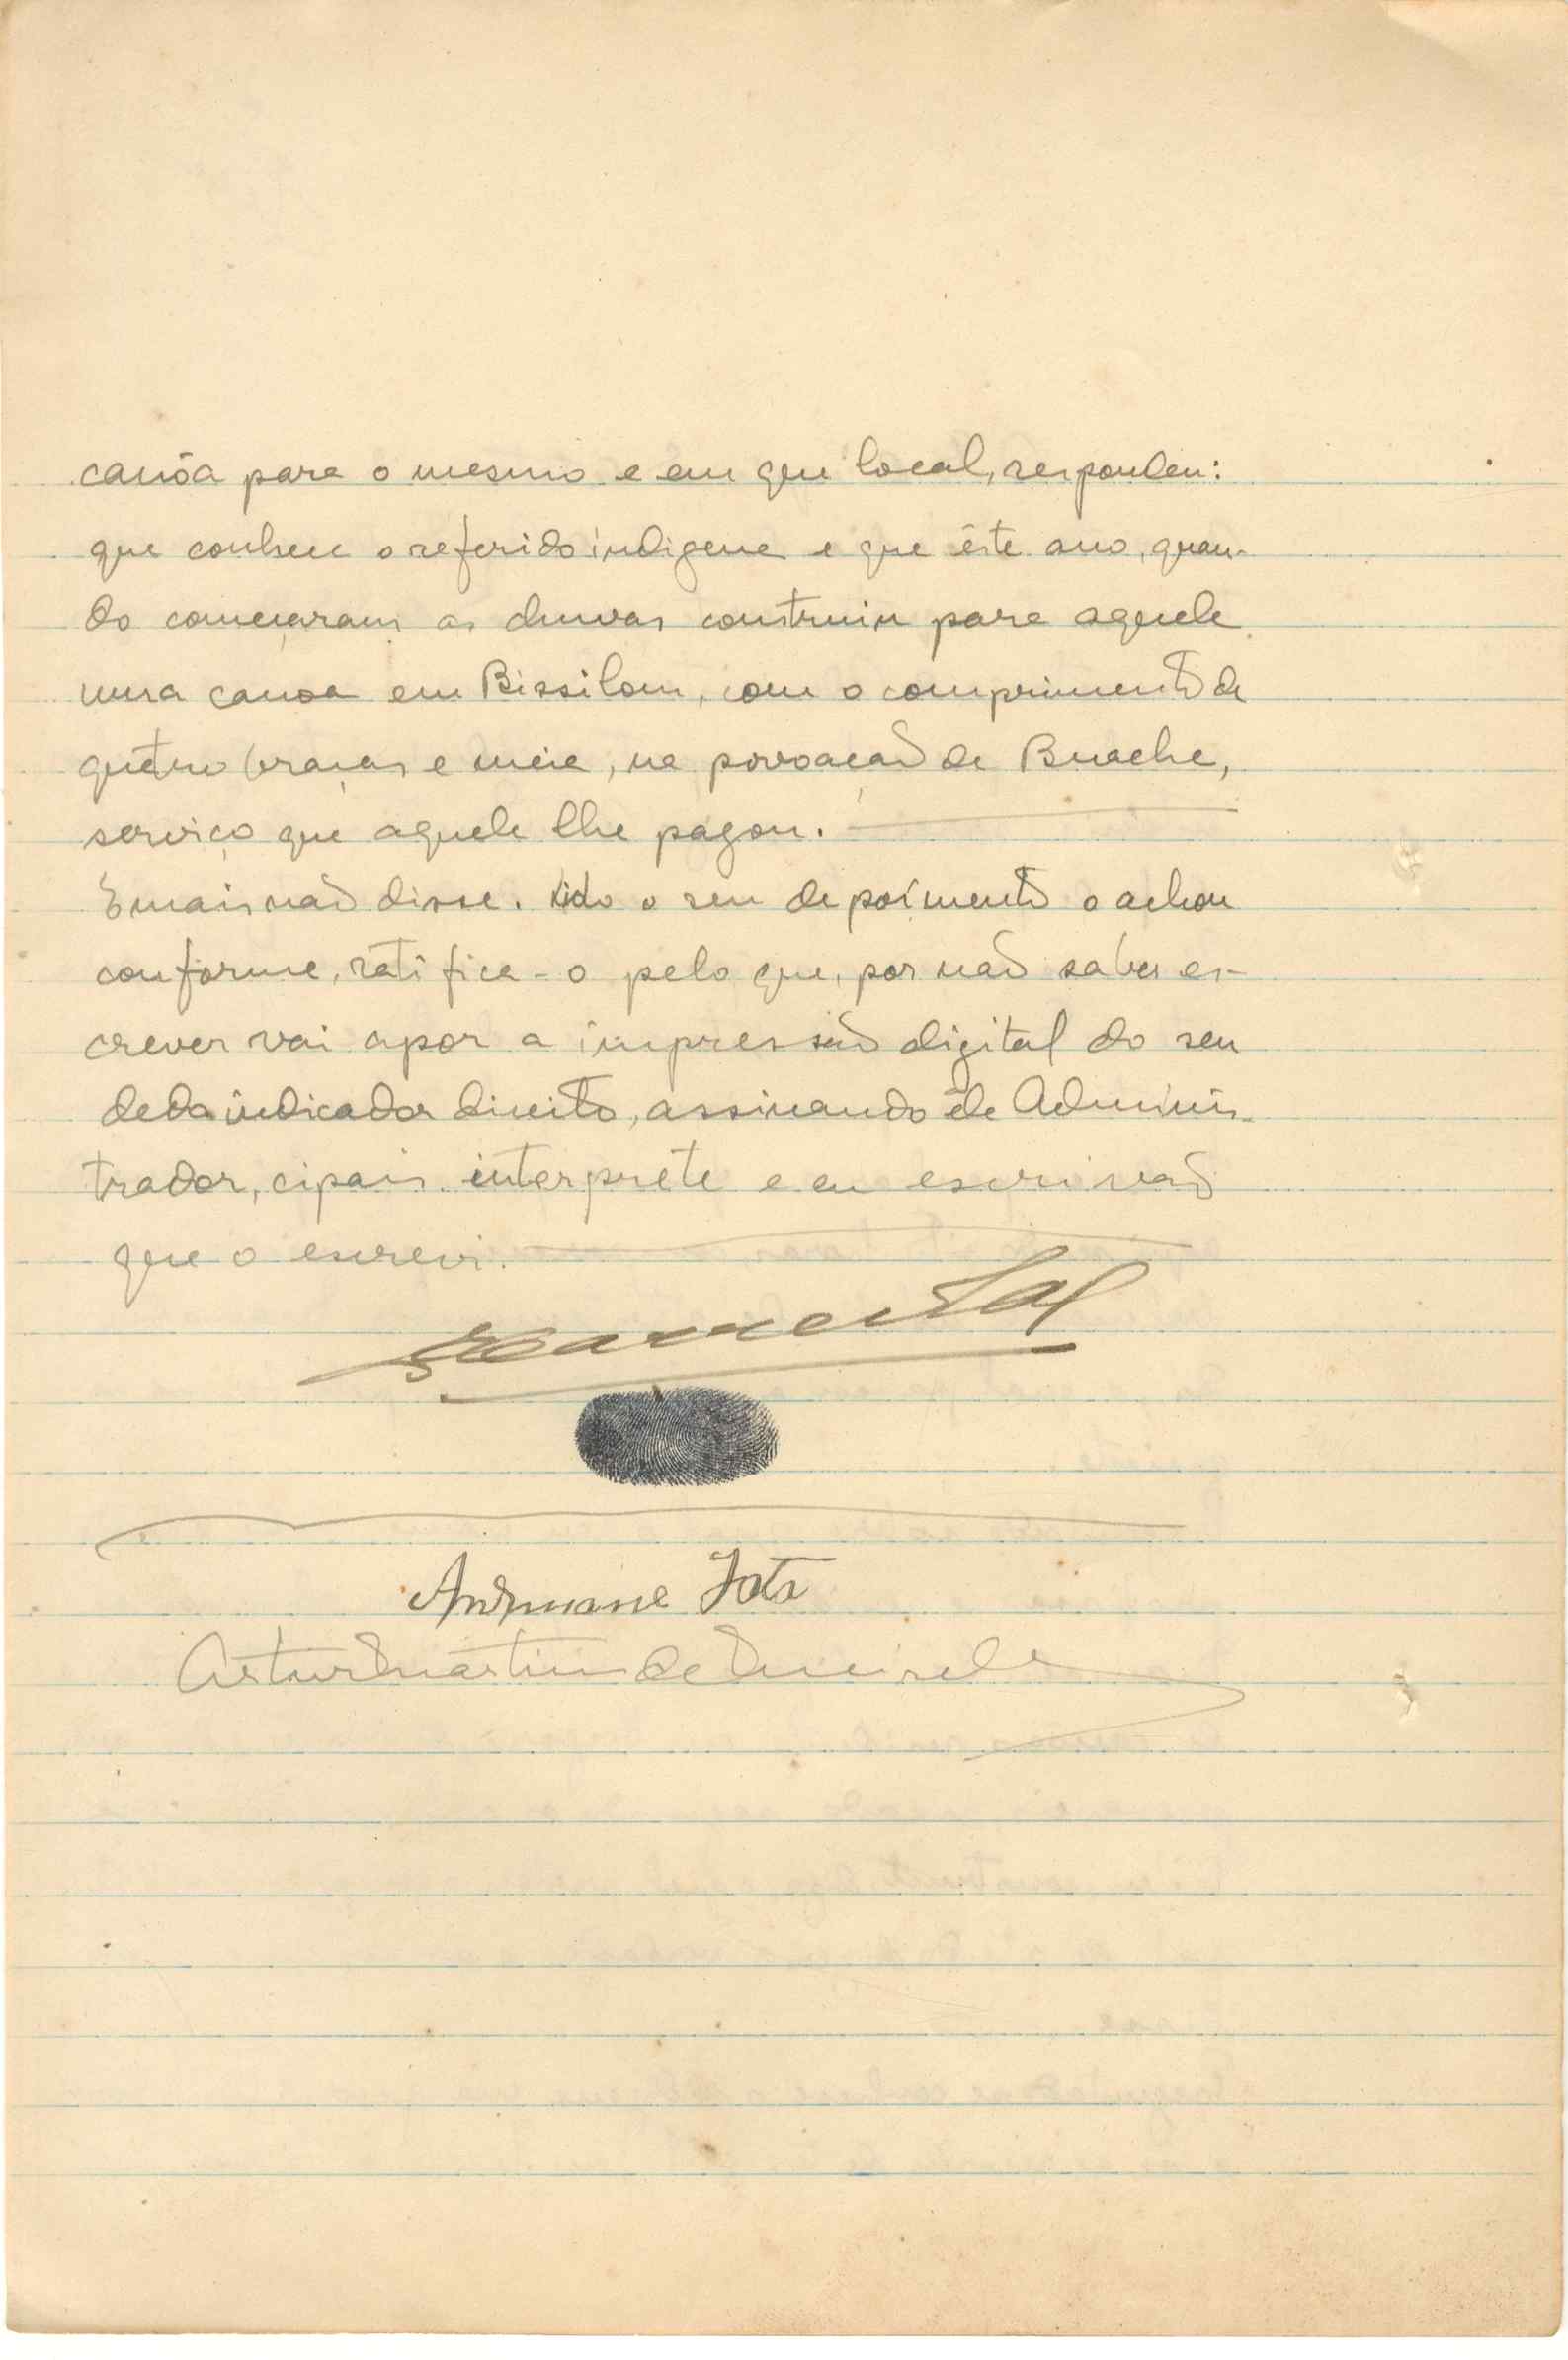 canôa para o mesmo e em que local, respondeu:
que conhece o referido indigena e que êste ano, quan-
do começaram as chuvas construiu para aquele
uma canoa em Bissilom, com o comprimento de
quatro braças e meia, na povoação de Buache,
serviço que aquele lhe pagou.
E mais não disse. Lido o seu depoimento o achou
conforme, ratifica-o pelo que, por não saber es-
crever vai apor a impressão digital do seu
dedo indicador direito, assinando êle Adminis-
trador, cipais interprete e eu escrivão
que o escrevi.
Artur Martins de Meireles